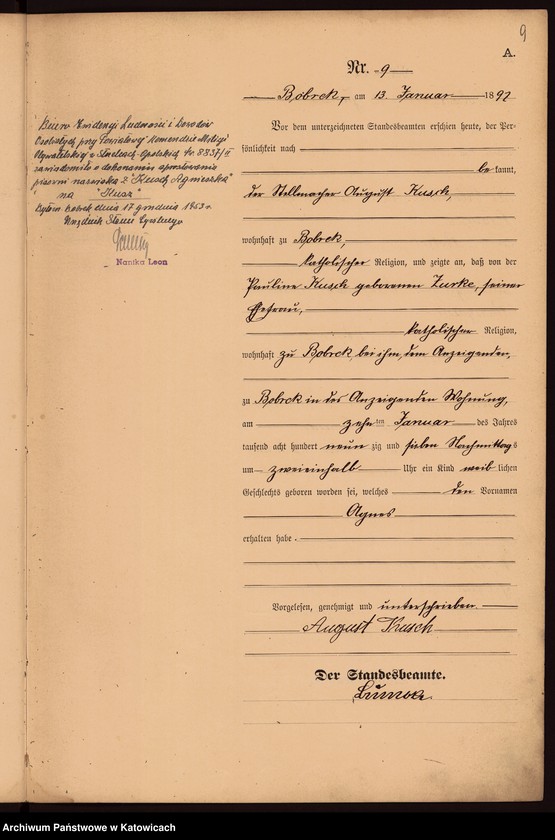 9
A.
Nr. 9
Bobrek, am 13. Januar 1897
Vor dem unterzeichneten Standesbeamten erschien heute, der Per-
sönlichkeit nach
be kannt,
der Stellmacher August Kusch,
wohnhaft zu Bobrek,
katholischer Religion, und zeigte an, daß von der
Pauline Kusch geborenen Zurke, seiner
Ehefrau,
katholischer Religion,
wohnhaft zu Bobrek, bei ihm, dem Anzeigenden,
zu Bobrek in des Anzeigenden Wohnung,
am zehnten Januar des Jahres
tausend acht hundert neun zig und sieben Nachmittags
um zweieinhalb Uhr ein Kind weib lichen
Geschlechts geboren worden sei, welches den Vornamen
Agnes
erhalten habe.
Vorgelesen, genehmigt und unterschrieben.
August Kusch
Der Standesbeamte.
Biuro Ewidencji Ludności i Dowodów
Osobistych przy Powiatowej Komendzie Milicji
Obywatelskiej w
zawiadomiło o dokonaniu sprostowania
pisowni nazwiska z "Kusch Agnieszka"
na "Kusz"
Bytom Bobrek dnia 17 grudnia 1963 r.
Urzędnik Stanu Cywilnego
Nanika Leon
Archiwum Państwowe w Katowicach